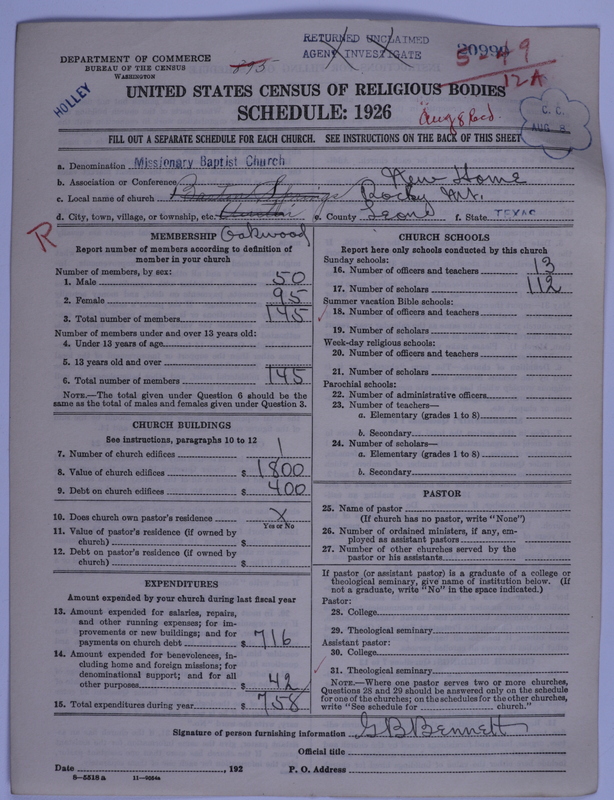 RETURNED UNCLAIMED
AGENT INVESTIGATE
DEPARTMENT OF COMMERCE
BUREAU OF THE CENSUS
WASHINGTON
895
20990
5-249
12A
HOLLEY
UNITED STATES CENSUS OF RELIGIOUS BODIES
SCHEDULE: 1926
Aug 8 Recd.
C. C.
AUG 8
FILL OUT A SEPARATE SCHEDULE FOR EACH CHURCH. SEE INSTRUCTIONS ON THE BACK OF THIS SHEET
a. Denomination Missionary Baptist Church
b. Association or Conference New Home
c. Local name of church Rocky Mt.
d. City, town, village, or township, etc. e. County Leon f. State TEXAS
Oakwood
R
MEMBERSHIP
Report number of members according to definition of
member in your church
Number of members, by sex:
1. Male 50
2. Female 95
3. Total number of members 145
Number of members under and over 13 years old:
4. Under 13 years of age
5. 13 years old and over
6. Total number of members 145
NOTE.—The total given under Question 6 should be
same as the total of males and females given under Question 3.
CHURCH BUILDINGS
See instructions, paragraphs 10 to 12
7. Number of church edifices 1
8. Value of church edifices $ 1800
9. Debt on church edifices $ 400
10. Does church own pastor's residence X
Yes or No
11. Value of pastor's residence (if owned by
church) $
12. Debt on pastor's residence (if owned by
church) $
EXPENDITURES
Amount expended by your church during last fiscal year
13. Amount expended for salaries, repairs,
and other running expenses; for im-
provements or new buildings; and for
payments on church debt $ 716
14. Amount expended for benevolences, in-
cluding home and foreign missions; for
denominational support; and for all
other purposes $ 42
15. Total expenditures during year $ 758
CHURCH SCHOOLS
Report here only schools conducted by this church
Sunday schools:
16. Number of officers and teachers 13
17. Number of scholars 112
Summer vacation Bible schools:
18. Number of officers and teachers
19. Number of scholars
Week-day religious schools:
20. Number of officers and teachers
21. Number of scholars
Parochial schools:
22. Number of administrative officers
23. Number of teachers—
a. Elementary (grades 1 to 8)
b. Secondary
24. Number of scholars—
a. Elementary (grades 1 to 8)
b. Secondary
PASTOR
25. Name of pastor
(If church has no pastor, write "None")
26. Number of ordained ministers, if any, em-
ployed as assistant pastors
27. Number of other churches served by the
pastor or his assistants
If pastor (or assistant pastor) is a graduate of a college or
theological seminary, give name of institution below. (If
not a graduate, write "No" in the space indicated.)
Pastor:
28. College
29. Theological seminary
Assistant pastor:
30. College
31. Theological seminary
NOTE.—Where one pastor serves two or more churches,
Questions 28 and 29 should be answered only on the schedule
for one of the churches; on the schedules for the other churches,
write "See schedule for church."
Signature of person furnishing information G B Bennett
Official title
Date , 192 P. O. Address
8-5518a 11-9054a